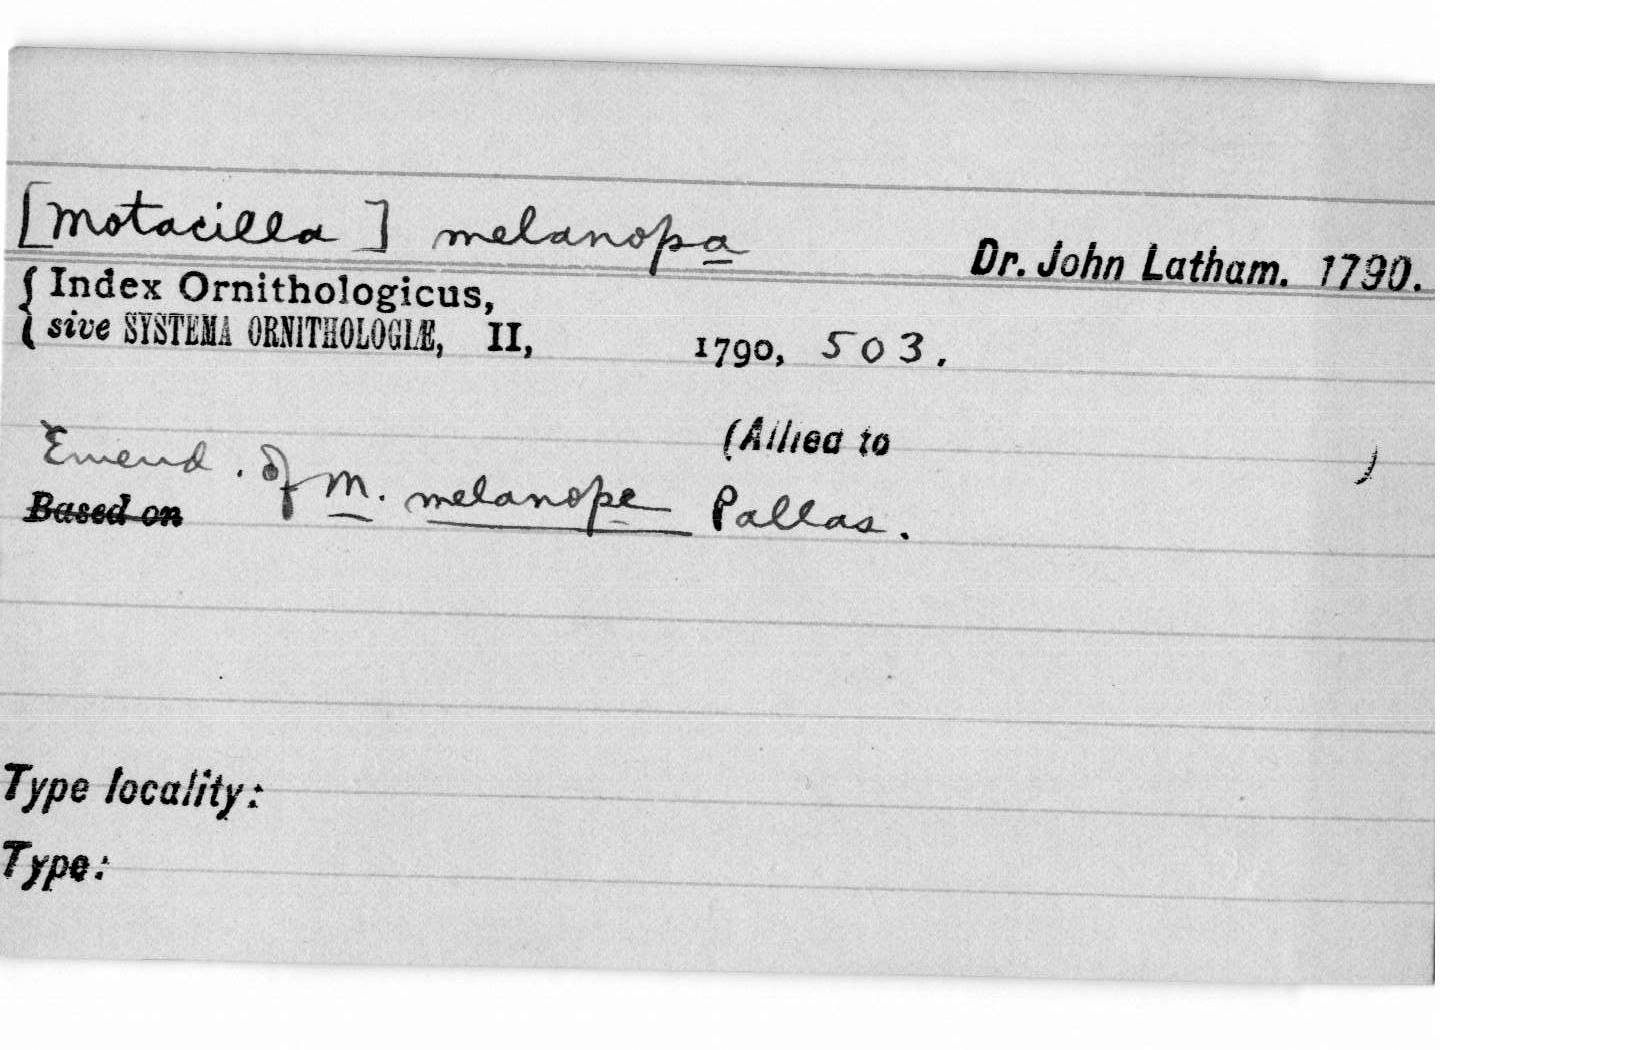 [Motacilla] melanopa Dr. John Latham. 1790.
{ Index Ornithologicus,
sive SYSTEMA ORNITHOLOGIÆ, II, 1790, 503.
(Allied to )
Emend. of M. melanope Pallas.
Based on
Type locality:
Type: